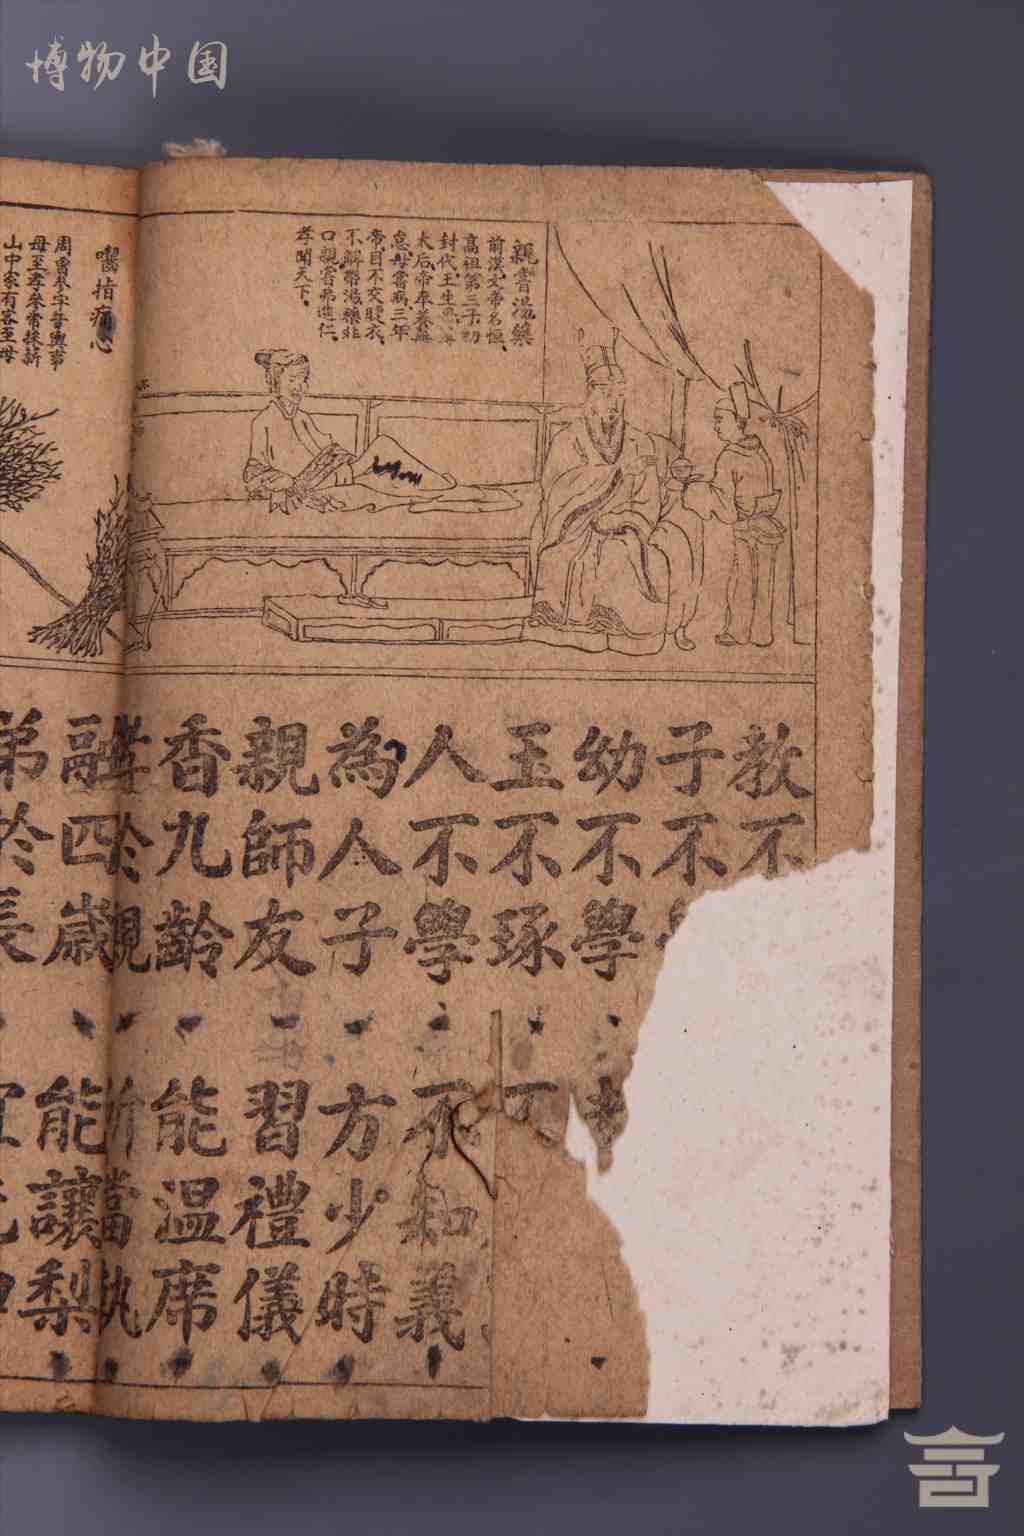 博物中国
親嘗湯藥
前漢文帝名恒、
高祖第三子初
封代王生
太后帝奉養無
怠母嘗病三年
帝目不交睫衣、
不解帶湯藥非
口親嘗弗進仁
孝聞天下。
嚙指痛心
周曾參字子輿事
母至孝參常採薪
山中家有客至母
教不
子不
幼不學
玉不琢不
人不學不知義
為人子方少時
親師友習禮儀
香九齡能温席
孝於親所當執
融四歲能讓梨
弟於長